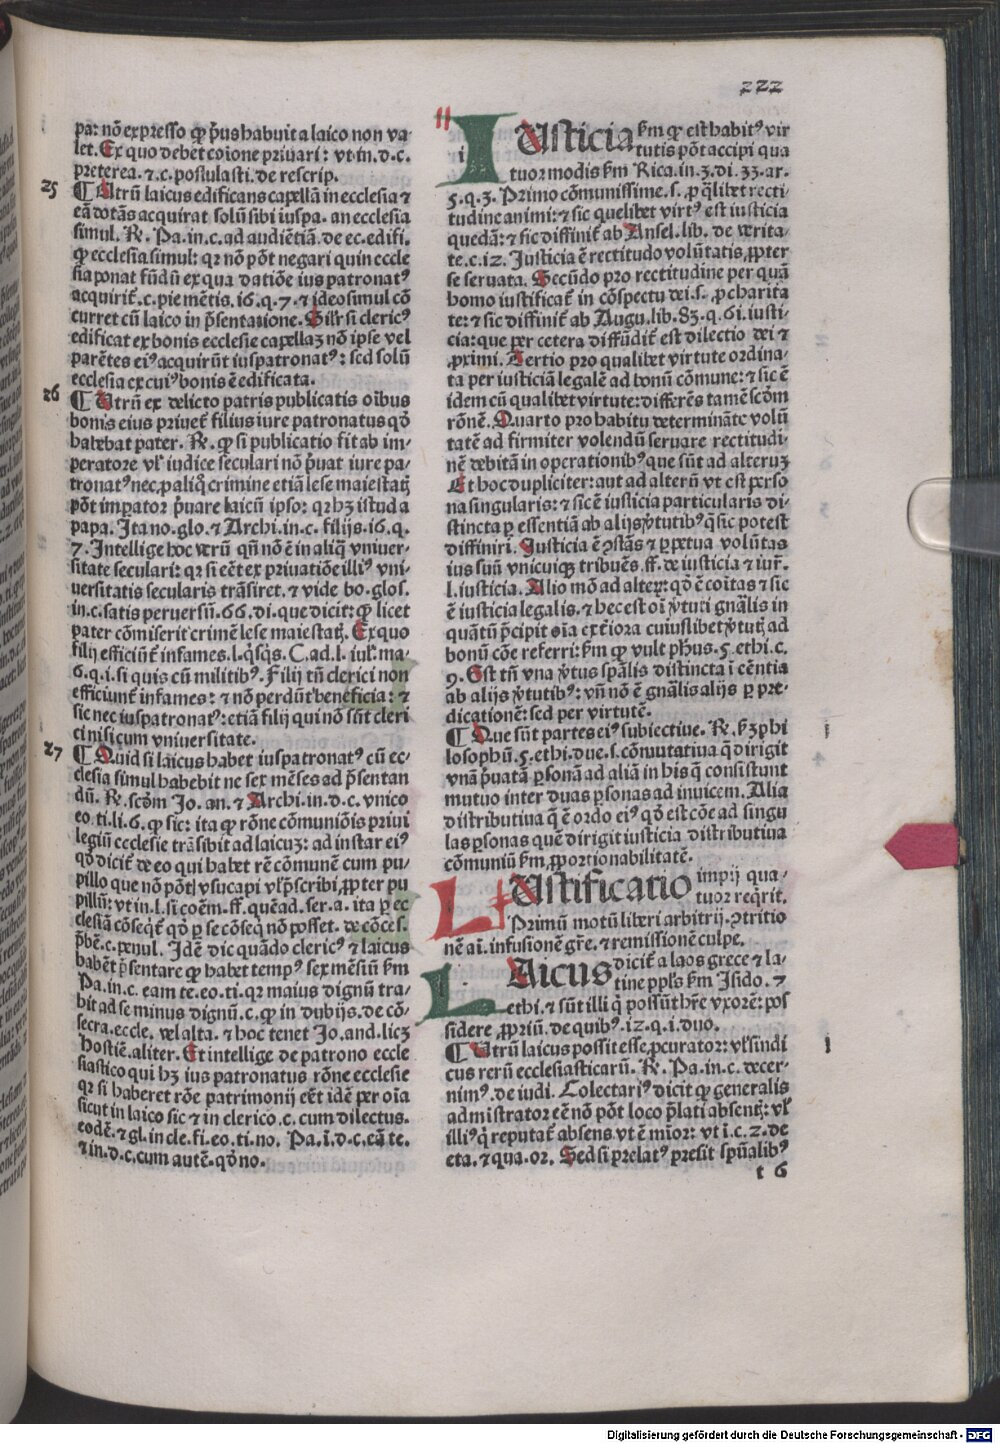 222
pa: nõ expresso ꝙ p̃us habuit a laico non va
let. Ex quo debet cõione priuari: vt in. d. c.
preterea. ⁊. c. postulasti. de rescrip.
25
¶ Utrũ laicus edificans capellã in ecclesia ⁊
eã dotãs acquirat solũ sibi iuspa. an ecclesia
simul. R̃. Pa. in. c. ad audiẽtiã. de ec. edifi.
ꝙ ecclesia simul: qꝛ nõ põt negari quin eccle
sia ponat fũdũ ex qua datiõe ius patronatꝰ
acquirit̃. c. pie mẽtis. i6. q. 7. ⁊ ideo simul cõ
curret cũ laico in p̃sentatione. Sil̃r si clericꝰ
edificat ex bonis ecclesie capellaȝ nõ ipse vel
parẽtes eiꝰ acquirũt iuspatronatꝰ: sed solũ
ecclesia ex cuiꝰ bonis ẽ edificata.
26
¶ Utrũ ex delicto patris publicatis oĩbus
bonis eius priuet̃ filius iure patronatus qđ
habebat pater. R̃. ꝙ si publicatio fit ab im-
peratore vl̃ iudice seculari nõ p̃uat iure pa-
tronatꝰ nec ꝓ aliq̃ crimine etiã lese maiestatꝭ
põt imꝑator p̃uare laicũ ipso: qꝛ hȝ istud a
papa. Ita no. glo. ⁊ Archi. in. c. filijs. i6. q.
7. Intellige hoc verũ qñ nõ ẽ in aliq̃ vniuer-
sitate seculari: qꝛ si eẽt ex priuatiõe illiꝰ vni-
uersitatis secularis trãsiret. ⁊ vide bo. glos.
in. c. satis peruersũ. 66. di. que dicit: ꝙ licet
pater cõmiserit crimẽ lese maiestatꝭ. Ex quo
filij efficiũt̃ infames. l. q̃sq̃s. C. ad. l. iul̃. ma-
6. q. i. si quis cũ militibꝰ. Filij tñ clerici non
efficiunt̃ infames: ⁊ nõ perdũt beneficia: ⁊
sic nec iuspatronatꝰ: etiã filij qui nõ sũt cleri
ci nisi cum vniuersitate.
27
¶ Quid si laicus habet iuspatronatꝰ cũ ec-
clesia simul habebit ne sex mẽses ad p̃sentan
dũ. R̃. scđm Jo. an. ⁊ Archi. in. d. c. vnico
eo. ti. li. 6. ꝙ sic: ita ꝙ rõne cõmuniõis priui
legiũ ecclesie trãsibit ad laicuȝ: ad instar eiꝰ
qđ dicit̃ de eo qui habet rẽ cõmunẽ cum pu-
pillo que nõ põt vsucapi vl̃ p̃scribi ꝓpter pu
pillũ: vt in. l. si coẽm. ff. quẽad. ser. a. ita ꝑ ec
clesiã cõseq̃t̃ qđ ꝑ se cõseq̃ nõ posset. de cõces.
p̃bẽ. c. penul. Idẽ dic quãdo clericꝰ ⁊ laicus
habẽt p̃sentare ꝙ habet tempꝰ sex mẽsiũ ẜm
Pa. in. c. eam te. eo. ti. qꝛ maius dignũ tra-
hit ad se minus dignũ. c. ꝙ in dubijs. de cõ-
secra. eccle. vel alta. ⁊ hoc tenet Jo. and. licȝ
hostiẽ. aliter. Et intellige de patrono eccle
siastico qui hȝ ius patronatus rõne ecclesie
qꝛ si haberet rõe patrimonij eẽt idẽ per oĩa
sicut in laico sic ⁊ in clerico. c. cum dilectus.
eodẽ. ⁊ gl. in cle. fi. eo. ti. no. Pa. i. d. c. eã te.
⁊ in. d. c. cum autẽ. qđ no.
Iusticia ẜm ꝙ est habitꝰ vir
tutis põt accipi qua
tuor modis ẜm Rica. in. 3. di. 33. ar.
5. q. 3. Primo cõmunissime. s. ꝓ q̃libet recti
tudine animi: ⁊ sic quelibet virtꝰ est iusticia
quedã: ⁊ sic diffinit̃ ab Ansel. lib. de verita-
te. c. i2. Justicia ẽ rectitudo volũtatis ꝓpter
se seruata. Secũdo pro rectitudine per quã
homo iustificat̃ in cõspectu dei. s. ꝓ charita
te: ⁊ sic diffinit̃ ab Augu. lib. 83. q. 6i. iusti-
cia: que per cetera diffũdit̃ est dilectio dei ⁊
ꝓximi. Tertio pro qualibet virtute ordina-
ta per iusticiã legalẽ ad bonũ cõmune: ⁊ sic ẽ
idem cũ qualibet virtute: differẽs tamẽ scđm
rõnẽ. Quarto pro habitu determinãte volũ
tatẽ ad firmiter volendũ seruare rectitudi-
nẽ debitã in operationibꝰ que sũt ad alteruȝ
Et hoc dupliciter: aut ad alterũ vt est perso
na singularis: ⁊ sic ẽ iusticia particularis di-
stincta ꝑ essentiã ab alijs v̓tutibꝰ q̃ sic potest
diffiniri. Justicia ẽ ꝯstãs ⁊ ꝑpetua volũtas
ius suũ vnicuiqꝫ tribuẽs. ff. de iusticia ⁊ iur̃.
l. iusticia. Alio mõ ad alterꝫ: qđ ẽ coĩtas ⁊ sic
ẽ iusticia legalis. ⁊ hec est oĩ v̓tuti gñalis in
quãtũ p̃cipit oĩa exteriora cuiuslibet v̓tutꝭ ad
bonũ cõe referri: ẜm ꝙ vult pħus. 5. ethi. c.
9. Est tñ vna v̓tus sp̃alis distincta ĩ eẽntia
ab alijs v̓tutibꝰ: vñ nõ ẽ gñalis alijs ꝑ pre-
dicationẽ: sed per virtutẽ.
i
¶ Que sũt partes eiꝰ subiectiue. R̃. ẜȝ phi
losophũ. 5. ethi. due. s. cõmutatiua q̃ dirigit
vnã p̃uatã ꝑsonã ad aliã in his q̃ consistunt
mutuo inter duas ꝑsonas ad inuicem. Alia
distributiua q̃ ẽ ordo eiꝰ qđ est cõe ad singu
las ꝑsonas quẽ dirigit iusticia distributiua
cõmuniũ ẜm ꝓportionabilitatẽ.
Iustificatio impij qua-
tuor req̃rit.
Primũ motũ liberi arbitrij. ꝯtritio
nẽ aĩ. infusionẽ gr̃e. ⁊ remissionẽ culpe.
LAicus dicit̃ a laos grece ⁊ la-
tine ppl̃s ẜm Isido. ⁊
ethi. ⁊ sũt illi q̃ possũt hr̃e vxorẽ: pos
sidere ꝓpriũ. de quibꝰ. i2. q. i. duo.
i
¶ Utrũ laicus possit esse ꝓcurator: vl̃ sindi
cus rerũ ecclesiasticarũ. R̃. Pa. in. c. decer-
nimꝰ. de iudi. Colectariꝰ dicit ꝙ generalis
admistrator eẽ nõ põt loco p̃lati absentꝭ: vl̃
illiꝰ q̃ reputat̃ absens vt ẽ mĩor: vt i. c. 2. de
eta. ⁊ qua. or. Sed si prelatꝰ presit sp̃ualibꝰ
t 6
Digitalisierung gefördert durch die Deutsche Forschungsgemeinschaft - DFG